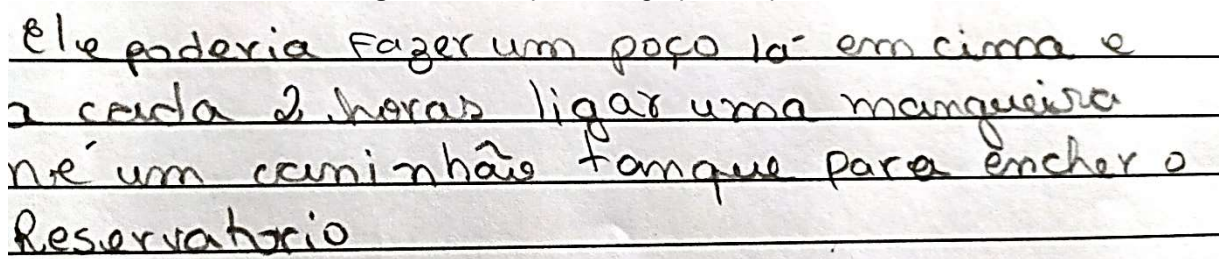 ele poderia fazer um poço lá em cima e
a cada 2 horas ligar uma mangueira
né um caminhão tanque para encher o
Reservatorio